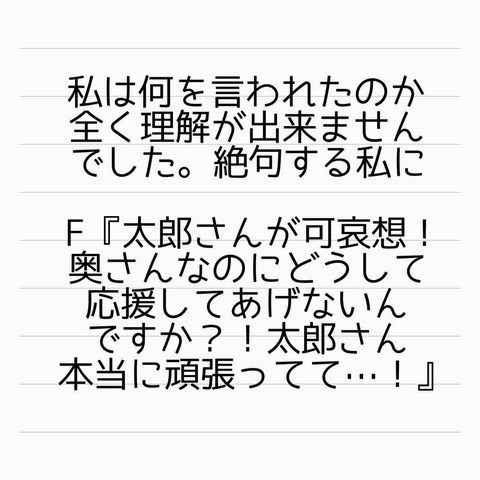 私は何を言われたのか
全く理解が出来ません
でした。絶句する私に
F『太郎さんが可哀想！
奥さんなのにどうして
応援してあげないん
ですか？！太郎さん
本当に頑張ってて…！』